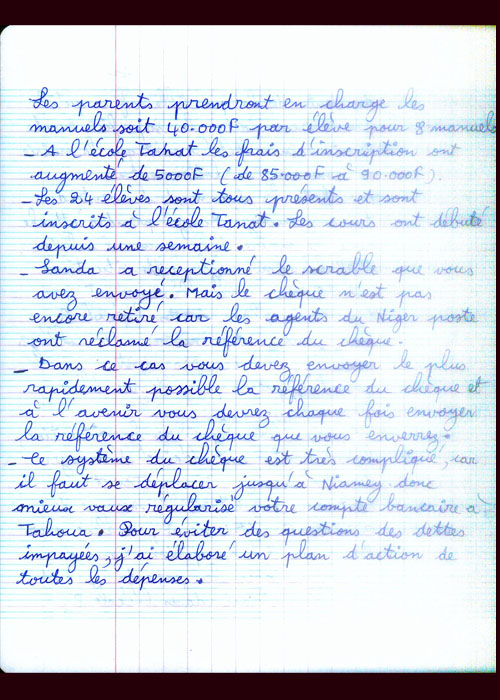 Les parents prendront en charge les
manuels soit 40.000F par élève pour 8 manuels
_ A l'école Tanat les frais d'inscription ont
augmenté de 5000F (de 85.000F à 90.000F).
_ Les 24 élèves sont tous présents et sont
inscrits à l'école Tanat. Les cours ont débuté
depuis une semaine.
_ Sanda a receptionné le scrable que vous
avez envoyé. Mais le chèque n'est pas
encore retiré car les agents du Niger poste
ont réclamé la référence du chèque.
_ Dans ce cas vous devez envoyer le plus
rapidement possible la référence du chèque et
à l'avenir vous devrez chaque fois envoyer
la référence du chèque que vous enverrez.
_ Ce système du chèque est très compliqué, car
il faut se déplacer jusqu'à Niamey donc
mieux vaux régularisé votre compte bancaire à
Tahoua. Pour éviter des questions des dettes
impayées, j'ai élaboré un plan d'action de
toutes les dépenses.